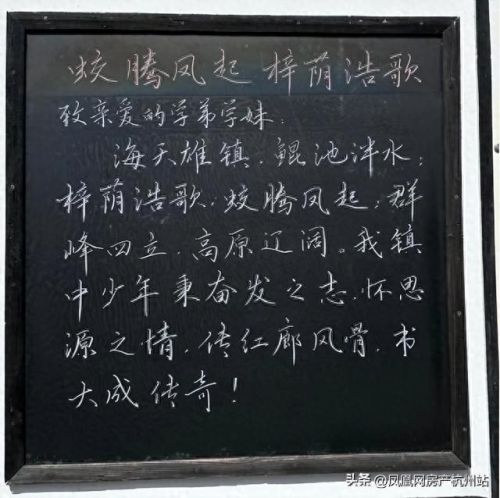 蛟腾凤起 梓荫浩歌
致亲爱的学弟学妹：
海天雄镇，鲲池泮水；
梓荫浩歌，蛟腾凤起；群
峰四立，高原辽阔。我镇
中少年秉奋发之志，怀思
源之情，传红廊风骨，书
大成传奇！
头条 @凤凰网房产杭州站